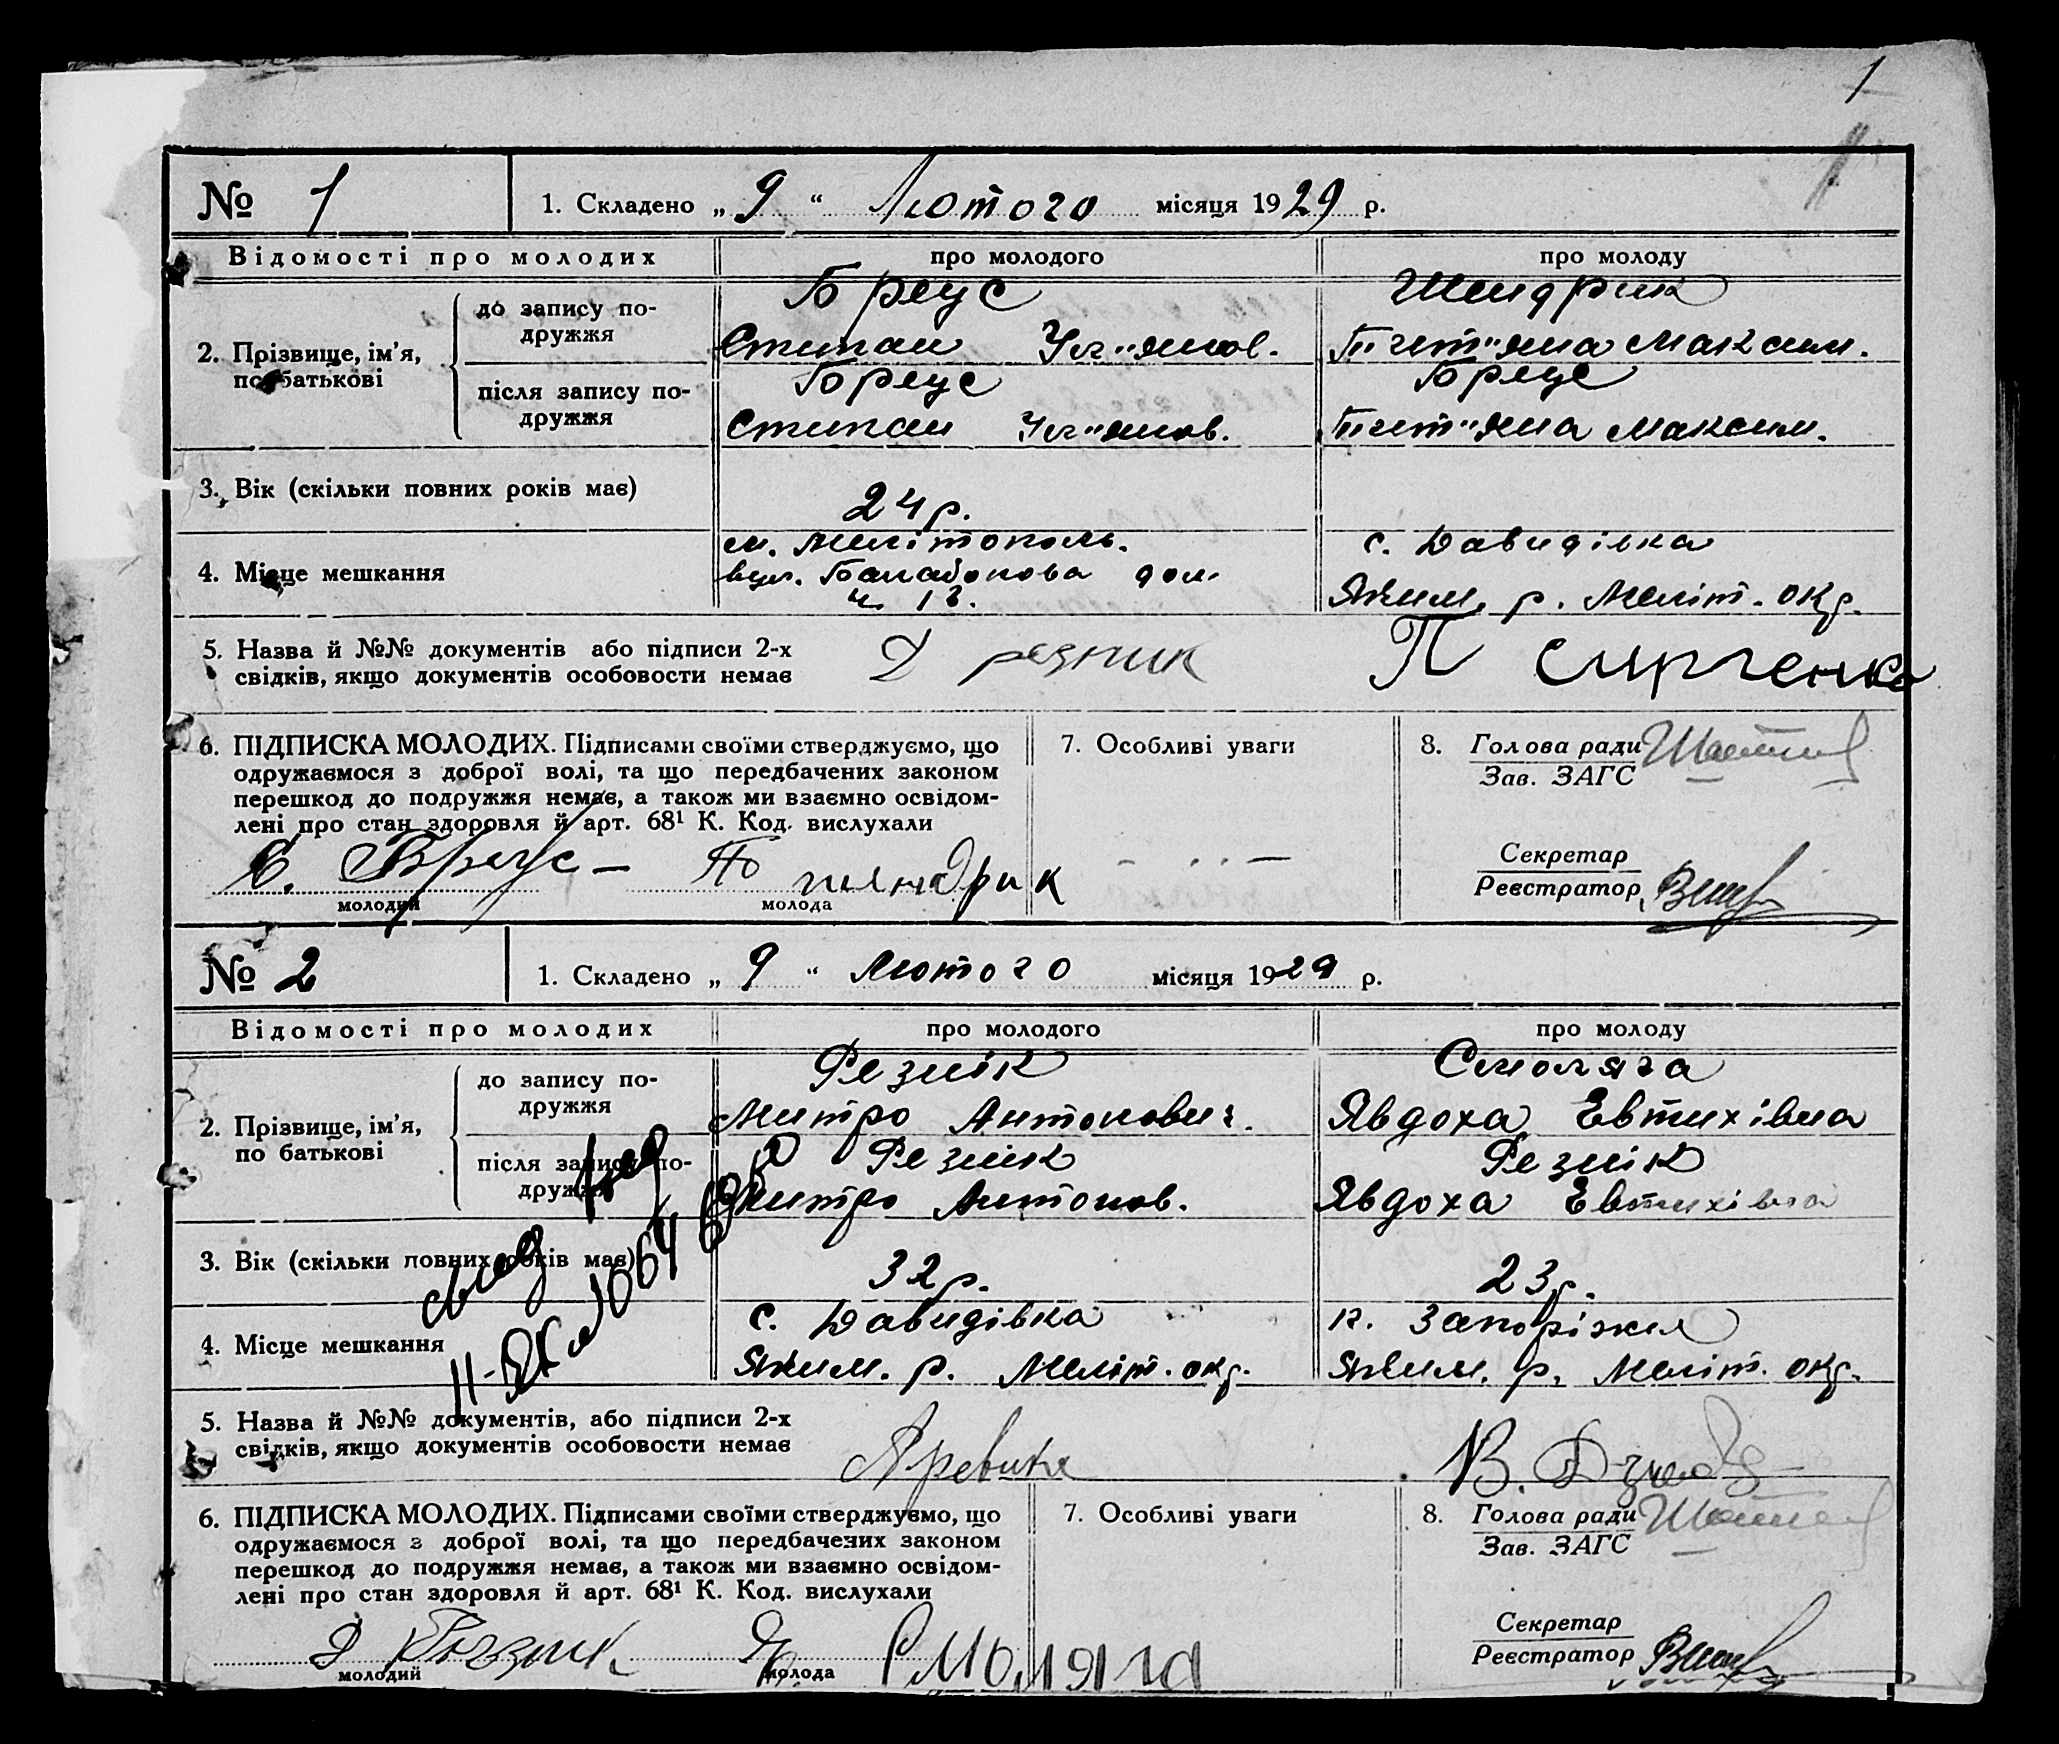 1
№ 1
1. Складено „ 9 “ Лютого місяця 1929 р.
Відомості про молодих
про молодого
про молоду
2. Прізвище, ім’я, по батькові
до запису подружжя
Бреус
Шендрик
Степан
Максим.
після запису подружжя
Бреус
Бреус
Степан
Максим.
3. Вік (скільки повних років має)
24 р.
4. Місце мешкання
м. Мелітополь.
с. Давидівка
вул. дом.
Яким. р. Меліт. окр.
5. Назва й №№ документів або підписи 2-х
свідків, якщо документів особовости немає
Д резник
П Сирченко
6. ПІДПИСКА МОЛОДИХ. Підписами своїми стверджуємо, що
одружаємося з доброї волі, та що передбачених законом
перешкод до подружжя немає, а також ми взаємно освідом-
лені про стан здоровля й арт. 68¹ К. Код. вислухали
С. Бреус —
шендрик
молодий
молода
7. Особливі уваги
8. Голова ради
Зав. ЗАГС
Секретар
Реєстратор
№ 2
1. Складено „ 9 “ Лютого місяця 1929 р.
Відомості про молодих
про молодого
про молоду
2. Прізвище, ім’я,
по батькові
до запису по-
дружжя
Резнік
Смоляга
Митро Антонович.
Явдоха Евтихівна
після запису по-
дружжя
Резнік
Резнік
Митро Антонов.
Явдоха Евтихівна
3. Вік (скільки повних років має)
32 р.
23 р.
4. Місце мешкання
с. Давидівка
к. Запоріжжя
Яким. р. Меліт. окр.
Яким. р. Меліт. окр.
5. Назва й №№ документів, або підписи 2-х
свідків, якщо документів особовости немає
6. ПІДПИСКА МОЛОДИХ. Підписами своїми стверджуємо, що
одружаємося з доброї волі, та що передбачених законом
перешкод до подружжя немає, а також ми взаємно освідом-
лені про стан здоровля й арт. 68¹ К. Код. вислухали
Смоляга
молодий
молода
7. Особливі уваги
8. Голова ради
Зав. ЗАГС
Секретар
Реєстратор